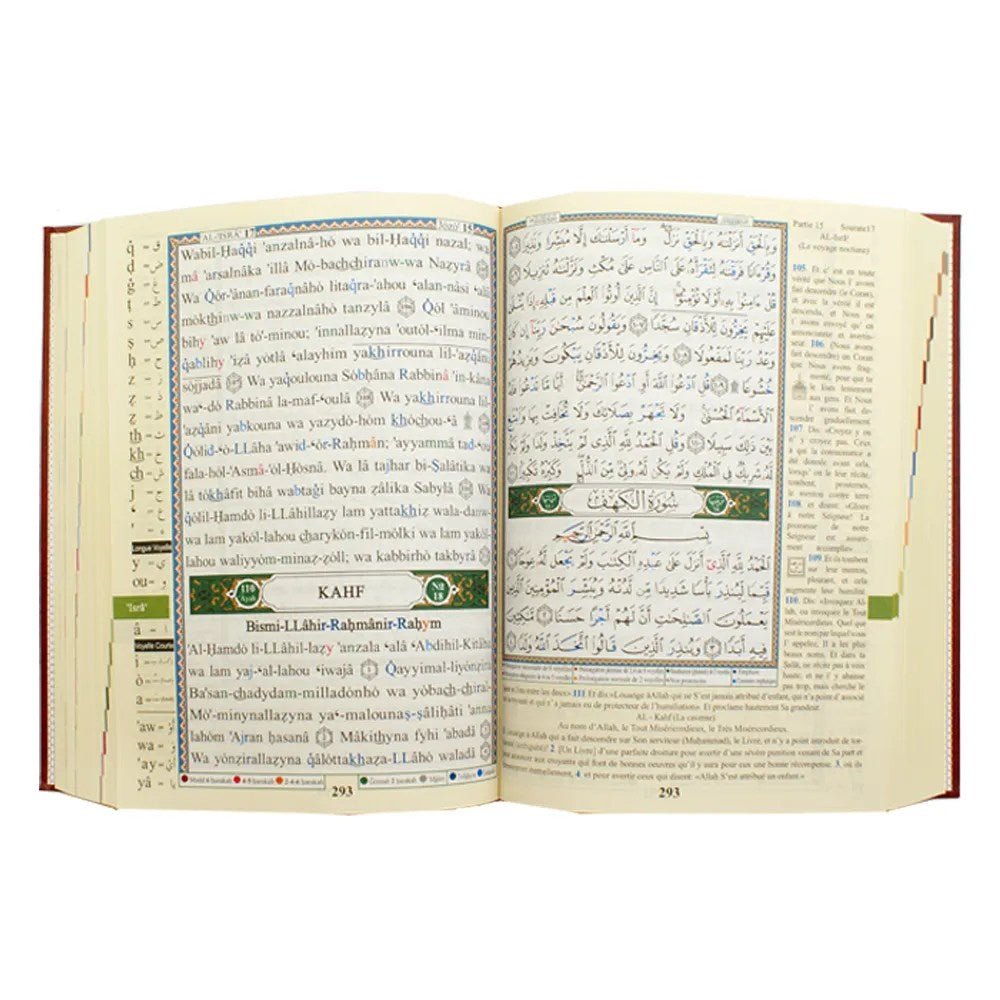 AL-'ISRÂ' 17
Wabil-Ḥaq̇q̇i 'anzalnâ-hó wa bil-Ḥaq̇q̇i nazal; wa
mâ 'arsalnâka 'illâ Mó-bachchiranw-wa Naẓyrâ
Wa Q̇ór-'ânan-faraq̇nâhó litaq̇ra-'ahou 'alan-nâsi 'alâ
mókthinw-wa nazzalnâhó tanzylâ Q̇ól 'âminou
bihy 'aw lâ tó'-minou; 'innallaẓyna 'outól-'ilma min-
q̇ablihy 'iẓâ yótlâ 'alayhim yakhirrouna lil-'aẓq̇âni
sójjadâ Wa yaq̇oulouna Sóbḥâna Rabbinâ 'in-kâna
wa-dó Rabbina la-maf-'oulâ Wa yakhirrouna lil-
'aẓq̇âni yabkouna wa yazydó-hóm khóchou-'â
Q̇ólid-'ó-LLâha 'awid-'ór-Raḥmân; 'ayyammâ tad-'ou
fala-hól-'Asmâ-'ól-Ḥósnâ. Wa lâ tajhar bi-Ṣalâtika
wa lâ tókhâfit bihâ wabtaġi bayna ẓâlika Sabylâ
Wa q̇ólil-Ḥamdó li-LLâhillaẓy lam yattakhiẓ wala-danw-
wa lam yakól-lahou charykón-fil-mólki wa lam yakól-
lahou waliyyóm-minaẓ-ẓóll; wa kabbirhó takbyrâ
110 Ayah
KAHF
No 18
Bismi-LLâhir-Raḥmânir-Raḥym
'Al-Ḥamdó li-LLâhil-laẓy 'anzala 'alâ 'Abdihil-Kitâba
wa lam yaj-'al-lahou 'iwajâ Q̇ayyimal-liyónẓira
Ba'san-chadydam-milladónhó wa yóbach-chiral-
Mó'-minynallaẓyna ya-malounaṣ-ṣâliḥâti 'anna
lahóm 'Ajran ḥasanâ Mâkithyna fyhi 'abadâ
Wa yónẓirallaẓyna q̇âlóttakhaẓa-LLâho waladâ
293
Longue Voyelle
y – ي
ou – و
'Isrâ'
Voyelle Courte
وَبِالْحَقِّ أَنزَلْنَاهُ وَبِالْحَقِّ نَزَلَ وَمَا أَرْسَلْنَاكَ إِلَّا مُبَشِّرًا وَنَذِيرًا
وَقُرْءَانًا فَرَقْنَاهُ لِتَقْرَأَهُ عَلَى النَّاسِ عَلَى مُكْثٍ وَنَزَّلْنَاهُ تَنزِيلًا
قُلْ ءَامِنُوا بِهِ أَوْ لَا تُؤْمِنُوا إِنَّ الَّذِينَ أُوتُوا الْعِلْمَ مِن قَبْلِهِ إِذَا يُتْلَى
عَلَيْهِمْ يَخِرُّونَ لِلْأَذْقَانِ سُجَّدًا وَيَقُولُونَ سُبْحَانَ رَبِّنَا إِن كَانَ
وَعْدُ رَبِّنَا لَمَفْعُولًا وَيَخِرُّونَ لِلْأَذْقَانِ يَبْكُونَ وَيَزِيدُهُمْ
خُشُوعًا قُلِ ادْعُوا اللَّهَ أَوِ ادْعُوا الرَّحْمَٰنَ أَيًّا مَّا تَدْعُوا فَلَهُ
الْأَسْمَاءُ الْحُسْنَى وَلَا تَجْهَرْ بِصَلَاتِكَ وَلَا تُخَافِتْ بِهَا وَابْتَغِ
بَيْنَ ذَٰلِكَ سَبِيلًا وَقُلِ الْحَمْدُ لِلَّهِ الَّذِي لَمْ يَتَّخِذْ وَلَدًا وَلَمْ يَكُن
لَّهُ شَرِيكٌ فِي الْمُلْكِ وَلَمْ يَكُن لَّهُ وَلِيٌّ مِّنَ الذُّلِّ وَكَبِّرْهُ تَكْبِيرًا
سُورَةُ الْكَهْفِ
بِسْمِ اللَّهِ الرَّحْمَٰنِ الرَّحِيمِ
الْحَمْدُ لِلَّهِ الَّذِي أَنزَلَ عَلَى عَبْدِهِ الْكِتَابَ وَلَمْ يَجْعَل لَّهُ عِوَجًا
قَيِّمًا لِّيُنذِرَ بَأْسًا شَدِيدًا مِّن لَّدُنْهُ وَيُبَشِّرَ الْمُؤْمِنِينَ الَّذِينَ
يَعْمَلُونَ الصَّالِحَاتِ أَنَّ لَهُمْ أَجْرًا حَسَنًا مَّاكِثِينَ
فِيهِ أَبَدًا وَيُنذِرَ الَّذِينَ قَالُوا اتَّخَذَ اللَّهُ وَلَدًا
Partie 15 Sourate17
AL-Isrâ'
(Le voyage nocturne)
105. Et c' est en toute
vérité que Nous l' avons
fait descendre (le Coran),
et avec la vérité il est
descendu, et Nous ne
t' avons envoyé qu' en
annonciateur et avertis-
seur. 106. (Nous avons
fait descendre) un Coran
que Nous avons frag-
menté, pour que tu
le lises lentement
aux gens. Et Nous
l' avons fait des-
cendre graduellement
107. Dis: «Croyez y ou
n' y croyez pas. Ceux
à qui la connaissance a
été donnée avant cela,
lorsqu' on le leur récite,
tombent, prosternés,
le menton contre terre
108. et disent: «Gloire
à notre Seigneur! La
promesse de notre
Seigneur est assuré-
ment accomplie».
109. Et ils tombent
sur leur menton,
pleurant, et cela
augmente leur humilité
110. Dis: «Invoquez Al-
lah, ou invoquez le Tout
Miséricordieux. Quel que
soit le nom par lequel vous
l' appelez, Il a les plus
beaux noms. Et dans ta
Salât, ne récite pas à voix
haute; et ne l'y abaisse pas
trop, mais cherche le
juste milieu entre les deux» 111. Et dis: «Louange à Allah qui ne S'est jamais attribué d'enfant, qui n'a jamais
eu de protecteur de l'humiliation». Et proclame hautement Sa grandeur.
AL - Kahf (La caverne)
Au nom d'Allah, le Tout Miséricordieux, le Très Miséricordieux.
Louange à Allah qui a fait descendre sur Son serviteur (Muhammad), le Livre, et n'y a point introduit de tor-
tuosité (ambiguïté)! 2. [Un Livre] d'une parfaite droiture pour avertir d'une sévère punition venant de Sa part et
annoncer aux croyants qui font de bonnes oeuvres qu'il y aura pour eux une bonne récompense. 3. où ils
demeureront éternellement, 4. et pour avertir ceux qui disent: «Allah S'est attribué un enfant.»
293